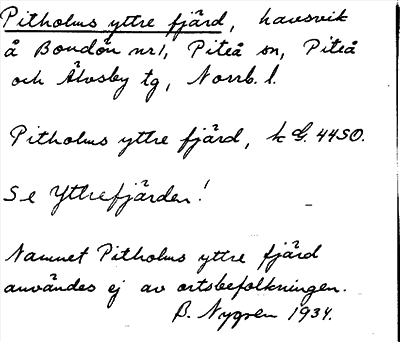 Pitholms yttre fjärd, havsvik
å Bondön nr1, Piteå sn, Piteå
och Älvsby tg, Norrb. l.
Pitholms yttre fjärd, k G. 44SO.
Se Yttrefjärden!
Namnet Pitholms yttre fjärd
användes ej av ortsbefolkningen.
B. Nygren 1934.